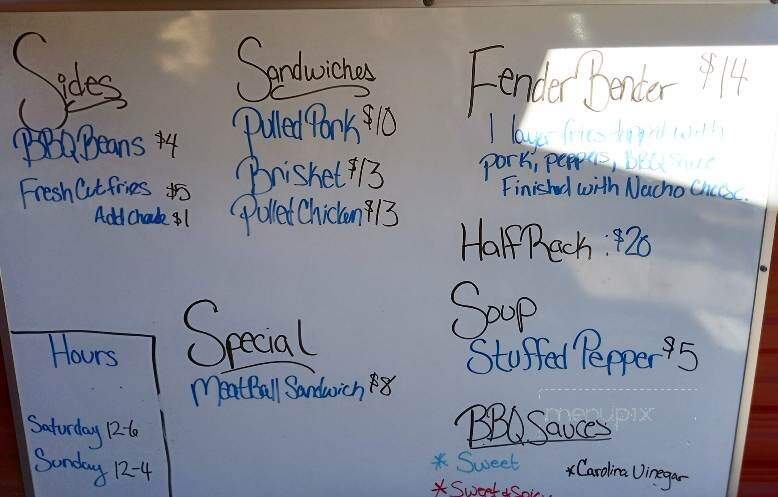 Sides
BBQ Beans $4
Fresh Cut fries $5
Add $1
Sandwiches
Pulled Pork $10
Brisket $13
Pulled Chicken $13
Special
MeatBall Sandwich $8
Hours
Saturday 12-6
Sunday 12-4
Fender Bender $14
1 layer fries topped with
pork, peppers, BBQ Sauce
Finished with Nacho Cheese.
Half Rack : $20
Soup
Stuffed Pepper $5
menupix
BBQ Sauces
* Sweet
* Carolina Vinegar
* Sweet & Spicy